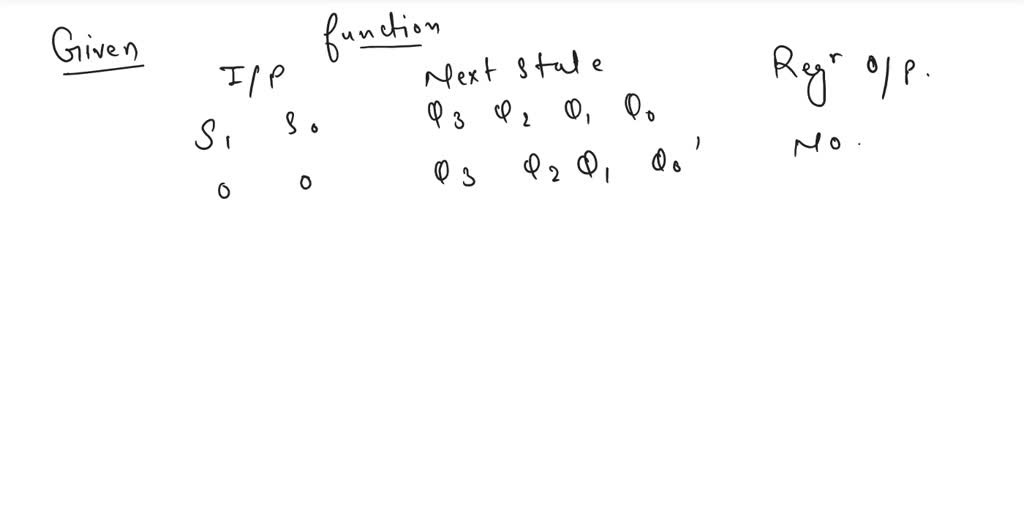 Given function
I/P Next state Regʳ O/P.
S₁ S₀ Q₃ Q₂ Q₁ Q₀
0 0 Q₃ Q₂ Q₁ Q₀' No.